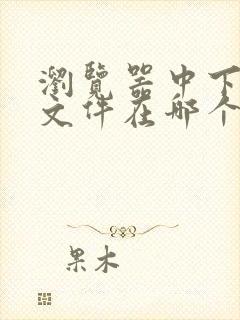 瀏覽器中下
文件在哪个
果木